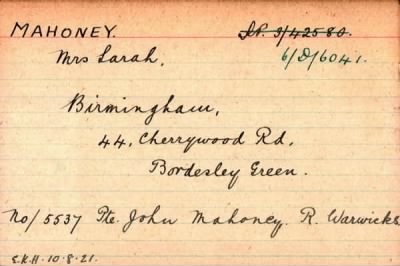 MAHONEY. S.P. 9/42580.
Mrs Sarah. 6/D/6041.
Birmingham,
44, Cherrywood Rd,
Bordesley Green.
No/5537 Pte. John Mahoney. R. Warwicks
S.K.H. 10.8.21.